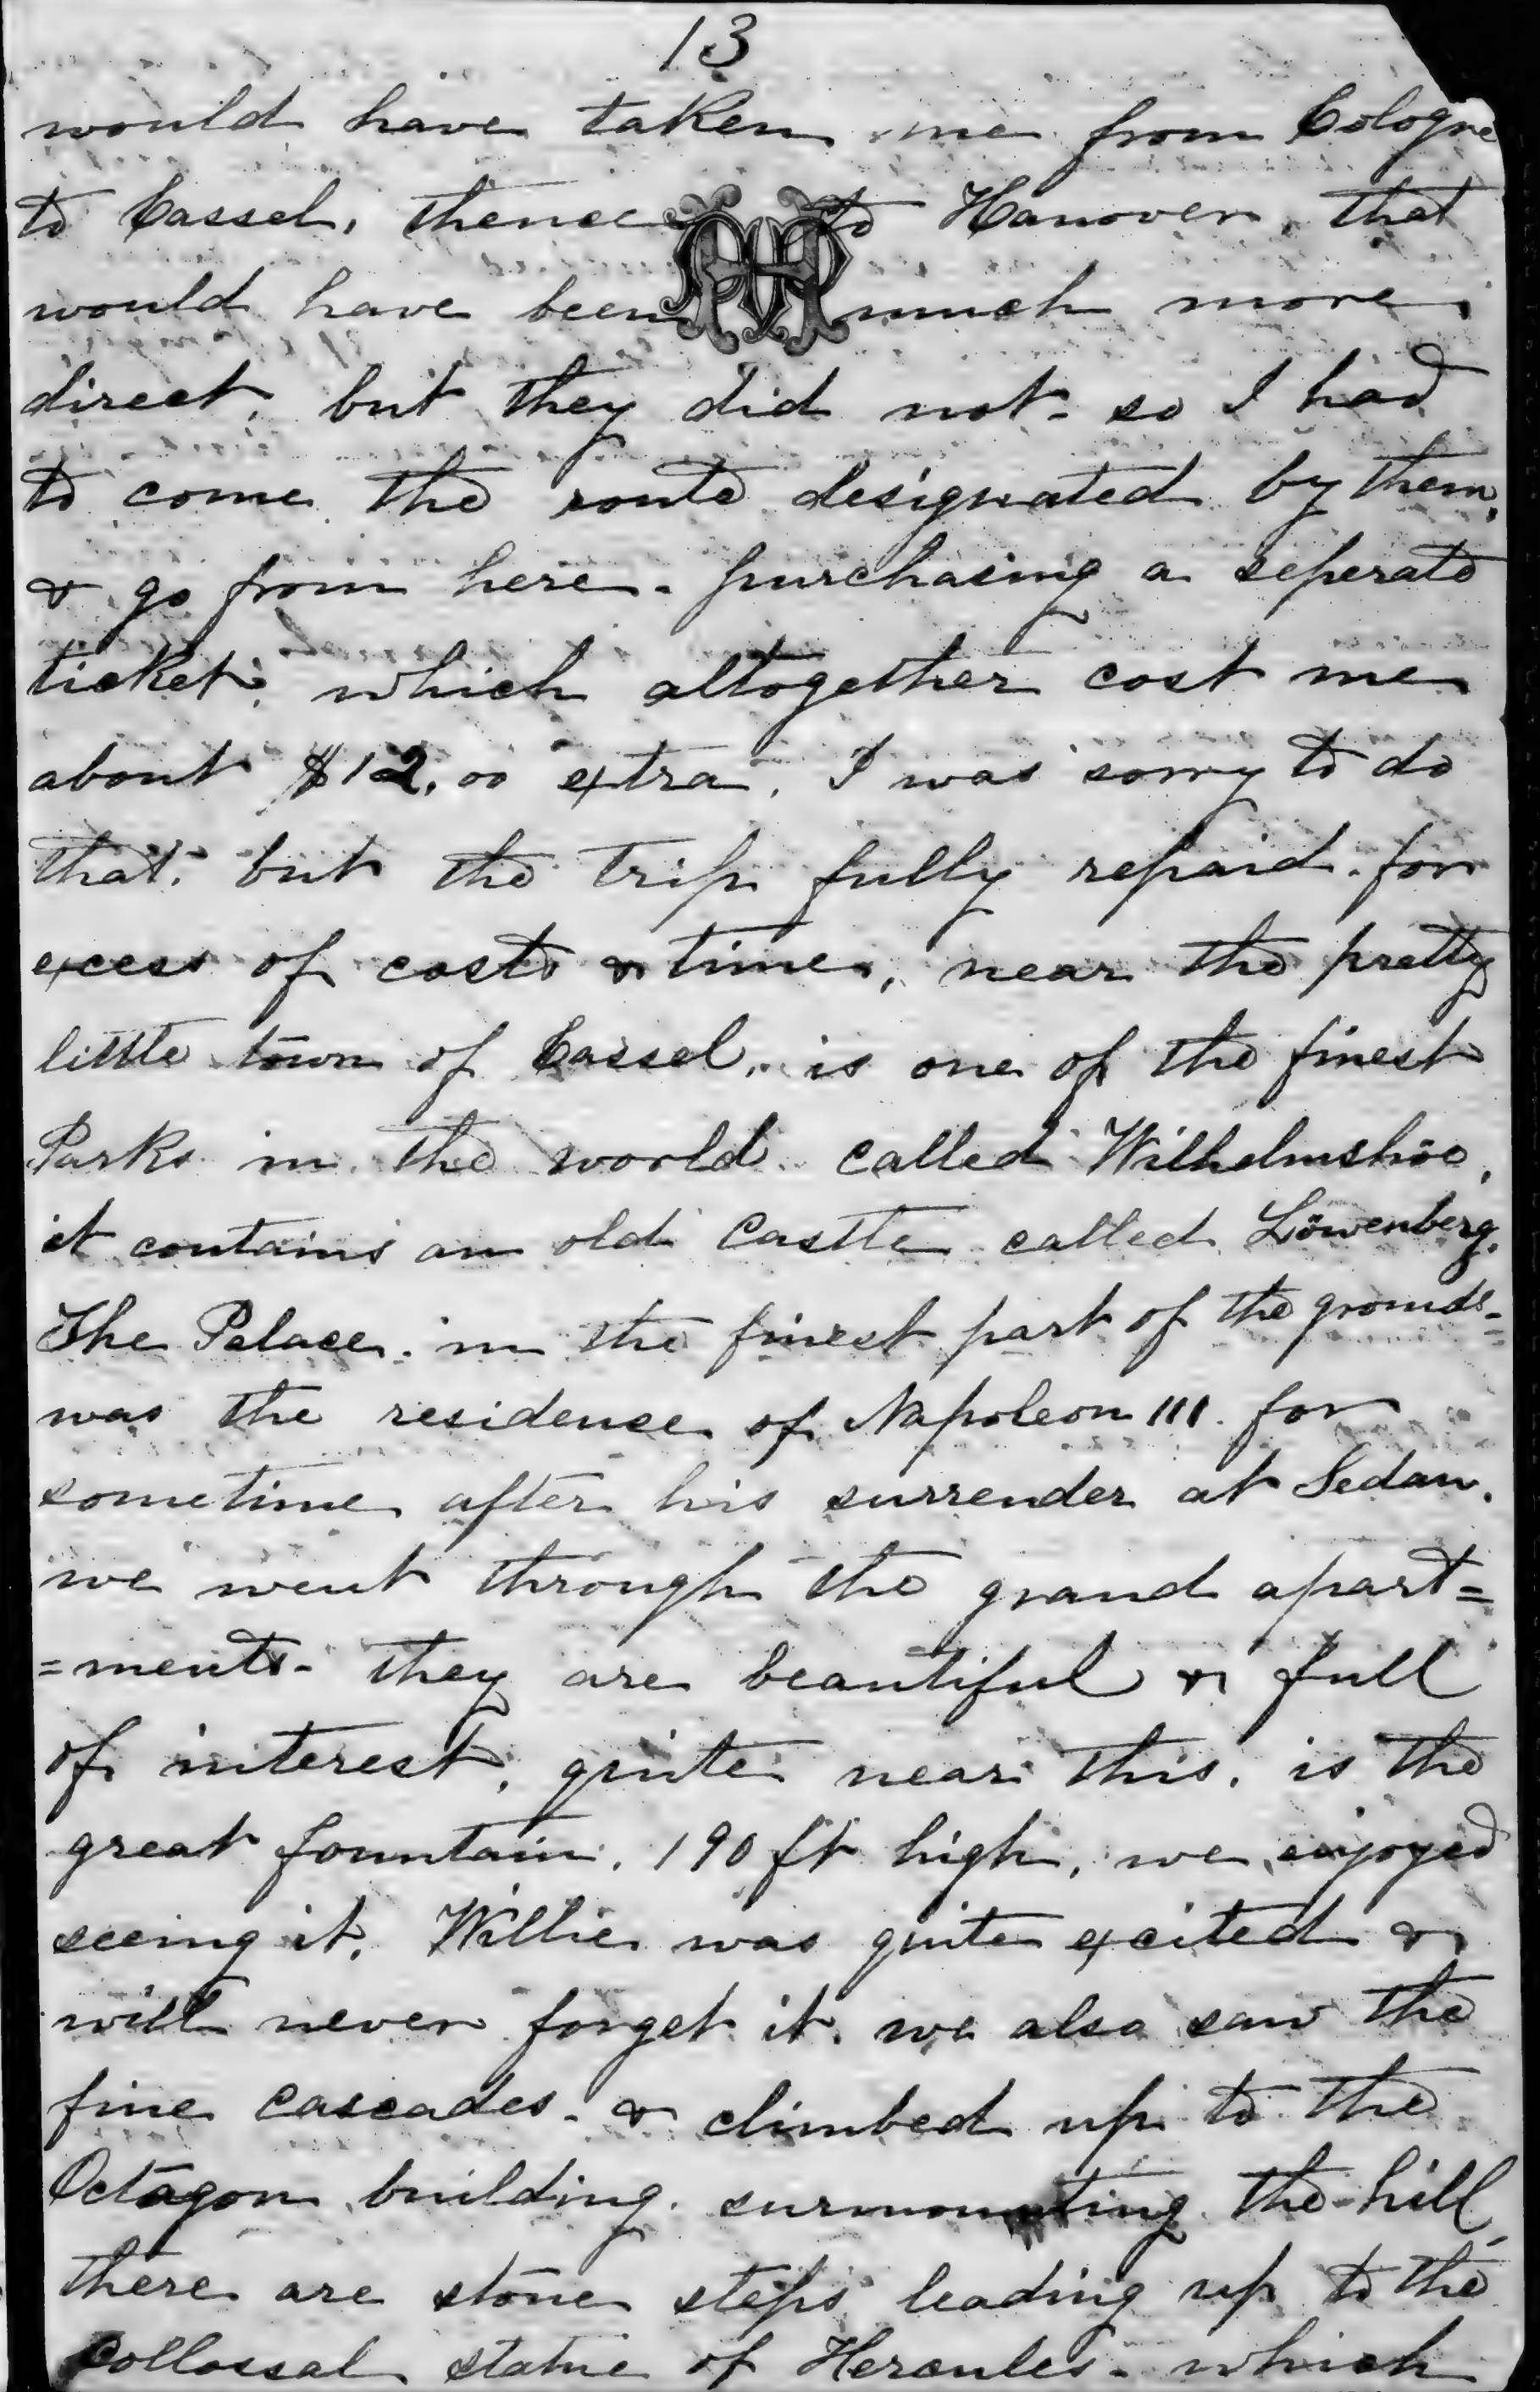 13
would have taken me from Cologne
to Cassel, thence to Hanover, that
would have been much more
direct, but they did not - so I had
to come the route designated by them,
& go from here - purchasing a seperate
ticket, which altogether cost me
about $12.00 extra, I was sorry to do
that, but the trip fully repaid for
excess of costs & time, near the pretty
little town of Cassel, is one of the finest
Parks in the world called Wilhelmshöe,
it contains an old Castle called Löwenberg.
The Palace in the finest part of the grounds -
was the residence of Napoleon III. for
sometime after his surrender at Sedan.
we went through the grand apart=
=ments - they are beautiful & full
of interest, quite near this, is the
great fountain, 190 ft high, we enjoyed
seeing it, Willie was quite excited &
will never forget it. we also saw the
fine cascades - & climbed up to the
Octagon building surmounting the hill,
there are stone steps leading up to the
collossal statue of Hercules - which